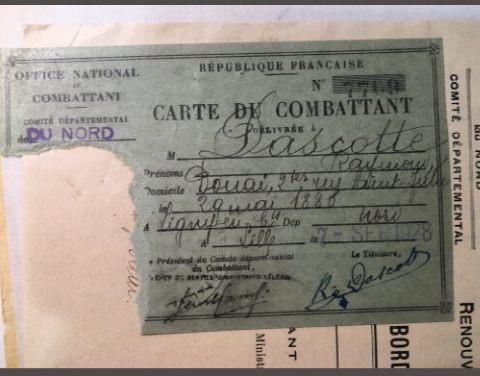 OFFICE NATIONAL
DU
COMBATTANT
COMITÉ DÉPARTEMENTAL
de DU NORD
RÉPUBLIQUE FRANÇAISE
N° 7769
CARTE DU COMBATTANT
DÉLIVRÉE à
M Dascotte
Prénoms Raymond
Domicile Douai, 2 ter rue Saint-Julien
le 29 mai 1880
A Dép Nord
A Lille le 7 - SEP 1928
Président du Comité départemental
du Combattant,
Le Titulaire,
R. Dascotte
COMITÉ DÉPARTEMENTAL
DU NORD
RENOUV
BORD
ANT
Minist